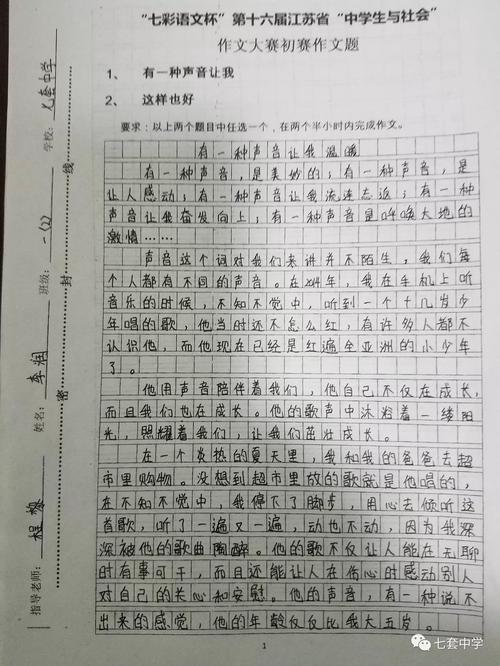 “七彩语文杯”第十六届江苏省“中学生与社会”
作文大赛初赛作文题
1、 有一种声音让我
2、 这样也好
要求：以上两个题目中任选一个，在两个半小时内完成作文。
有一种声音让我温暖
有一种声音，是美妙的；有一种声音，是
让人感动；有一种声音让我流连忘返；有一种
声音让我奋发向上；有一种声音是呼唤大地的
激情……
声音这个词对我们来讲并不陌生，我们每
个人都有不同的声音。在2014年，我在手机上听
音乐的时候，不知不觉中，听到一个十几岁少
年唱的歌，他当时还不怎么红，有许多人都不
认识他，而他现在已经是红遍全亚洲的小少年
了。
他用声音陪伴着我们，他自己不仅在成长，
而且我们也在成长。他的歌声中沐浴着一缕阳
光，照耀着我们，让我们茁壮成长。
在一个炎热的夏天里，我和我的爸爸去超
市里购物。没想到超市里放的歌就是他唱的，
在不知不觉中，我停下了脚步，用心去倾听这
首歌，听了一遍又一遍，动也不动，因为我深
深被他的歌曲陶醉。他的歌不仅让人能在无聊
时有事可干，而且还能让人在伤心时感动别人
对自己的关心和安慰。他的声音，有一种说不
出来的感觉，他的年龄仅仅比我大五岁。
学校：七套中学
班级：一(2)
姓名：李润
指导老师：程
线
封
密
1
七套中学